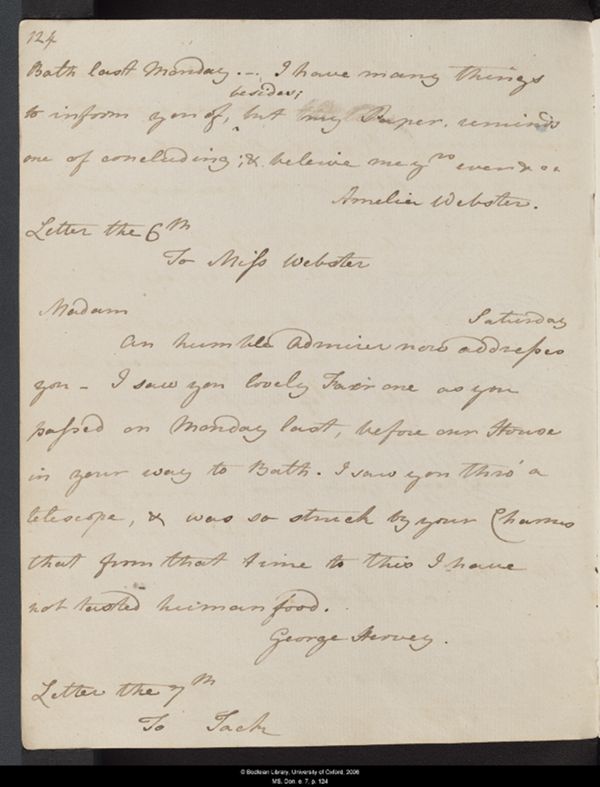 124
Bath last Monday. — I have many things
besides;
to inform you of, but my Paper reminds
me of concluding; & beleive me yrs ever &c &c
Amelia Webster.
Letter the 6th
To Miss Webster
Madam
Saturday
An humble Admirer now addresses
you — I saw you lovely Fair one as you
passed on Monday last, before our House
in your way to Bath. I saw you thro' a
telescope, & was so struck by your Charms
that from that time to this I have
not tasted human food.
George Hervey.
Letter the 7th
To Jack
© Bodleian Library, University of Oxford, 2006
MS. Don. e. 7, p. 124